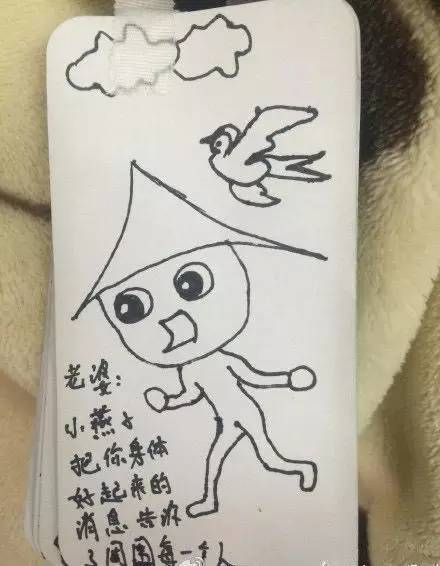 老婆：
小燕子
把你身体
好起来的
消息告诉
了周围每一个人